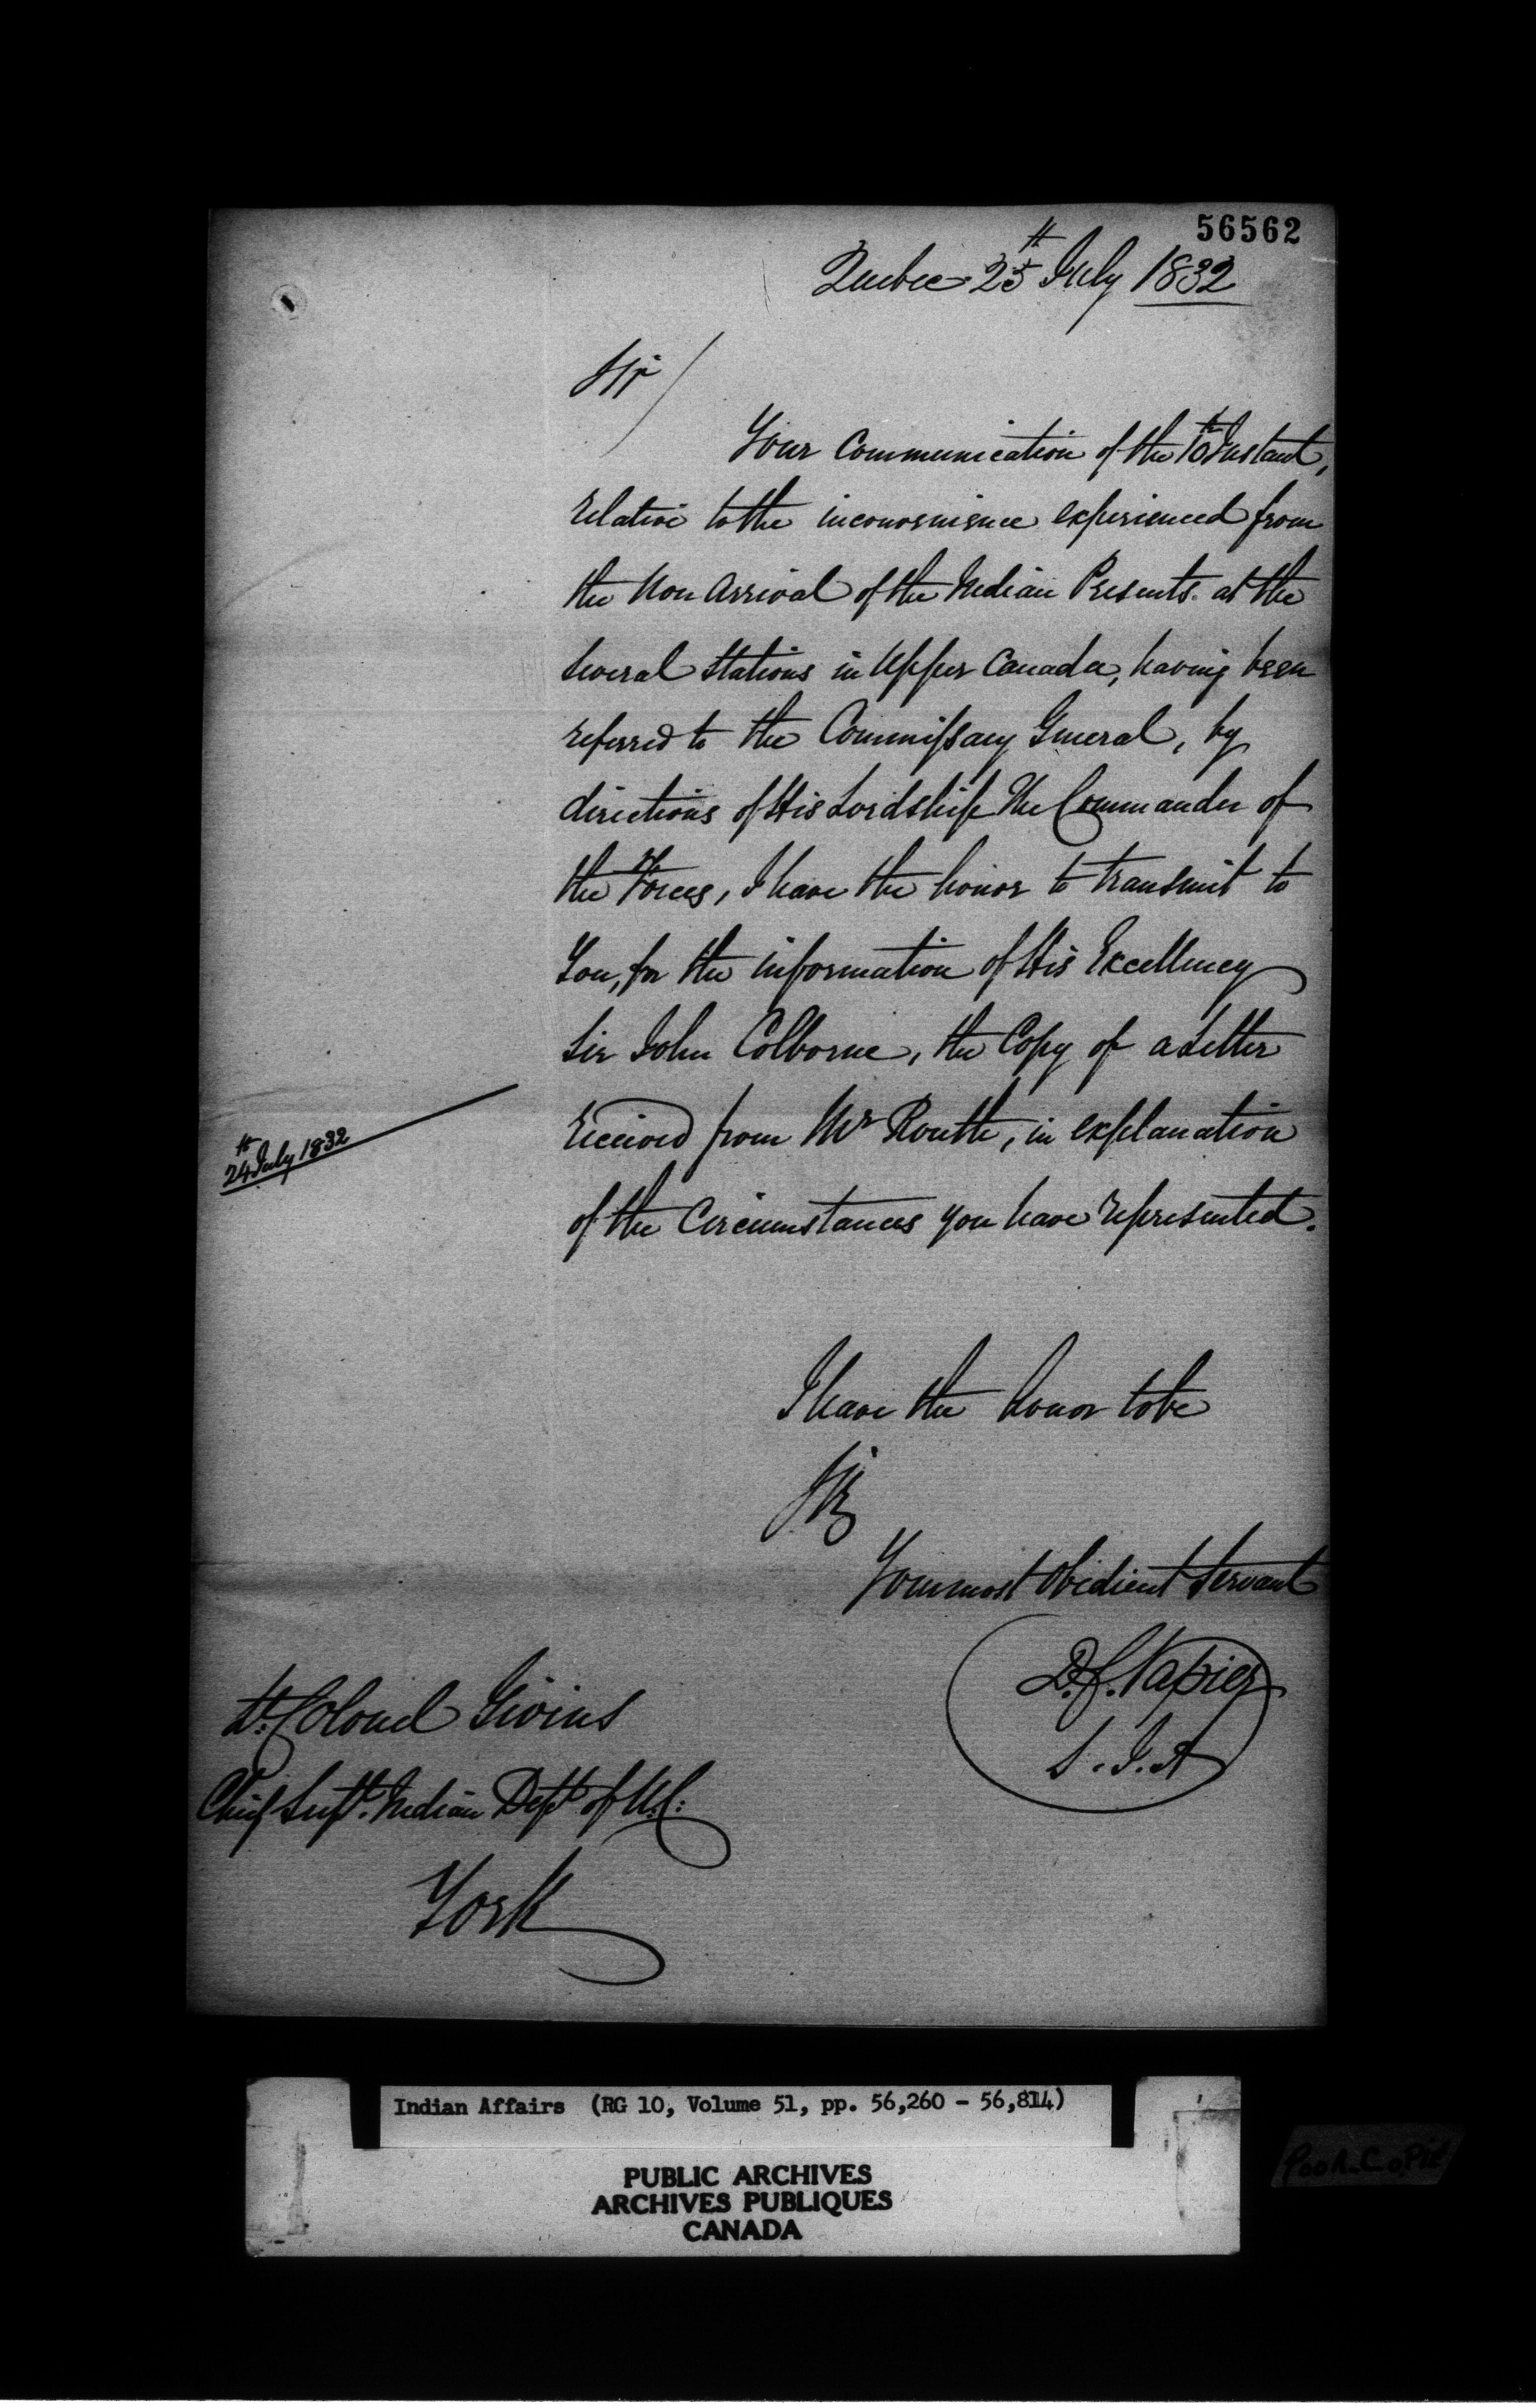 56562
Quebec 25th July 1832
Sir/
Your Communication of the 10th Instant,
relative to the inconvenience experienced from
the Non Arrival of the Indian Presents at the
several Stations in Upper Canada, having been
referred to the Commissary General, by
directions of His Lordship The Commander of
the Forces, I have the honor to transmit to
You, for the information of His Excellency
Sir John Colborne, the Copy of a Letter
24th July 1832
received from Mr Routh, in explanation
of the Circumstances you have represented.
I have the honor to be
Sir
Your most obedient Servant
D.C. Napier
S.I.A
Lt. Colonel Givins
Chief Supt. Indian Dept of U.C:
York
Indian Affairs (RG 10, Volume 51, pp. 56,260 - 56,814)
PUBLIC ARCHIVES
ARCHIVES PUBLIQUES
CANADA
POOR COPIE